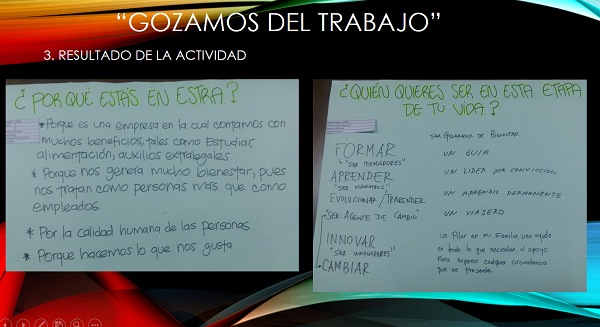 “GOZAMOS DEL TRABAJO”
3. RESULTADO DE LA ACTIVIDAD
¿POR QUÉ ESTÁS EN ESTRA?
* Porque es una empresa en la cual contamos con
muchos beneficios, tales como Estudiar,
alimentación, auxilios extralegales
* Porque nos genera mucho bienestar, pues
nos tratan como personas más que como
empleados.
* Por la calidad humana de las personas
* Porque hacemos lo que nos gusta
¿QUIÉN QUIERES SER EN ESTA ETAPA
DE TU VIDA?
FORMAR
"SER FORMADORES"
APRENDER
EVOLUCIONAR / TRASCENDER
SER AGENTE DE CAMBIO
INNOVAR
"SER INNOVADORES"
CAMBIAR
SER GENERADOR DE BIENESTAR.
UN GUIA
UN LIDER POR CONVICCION
UN APRENDIZ PERMANENTE
UN VIAJERO
Un Pilar en mi Familia, una ayuda
en todo lo que necesiten, el apoyo
Para superar cualquier circunstancia
que se presente.